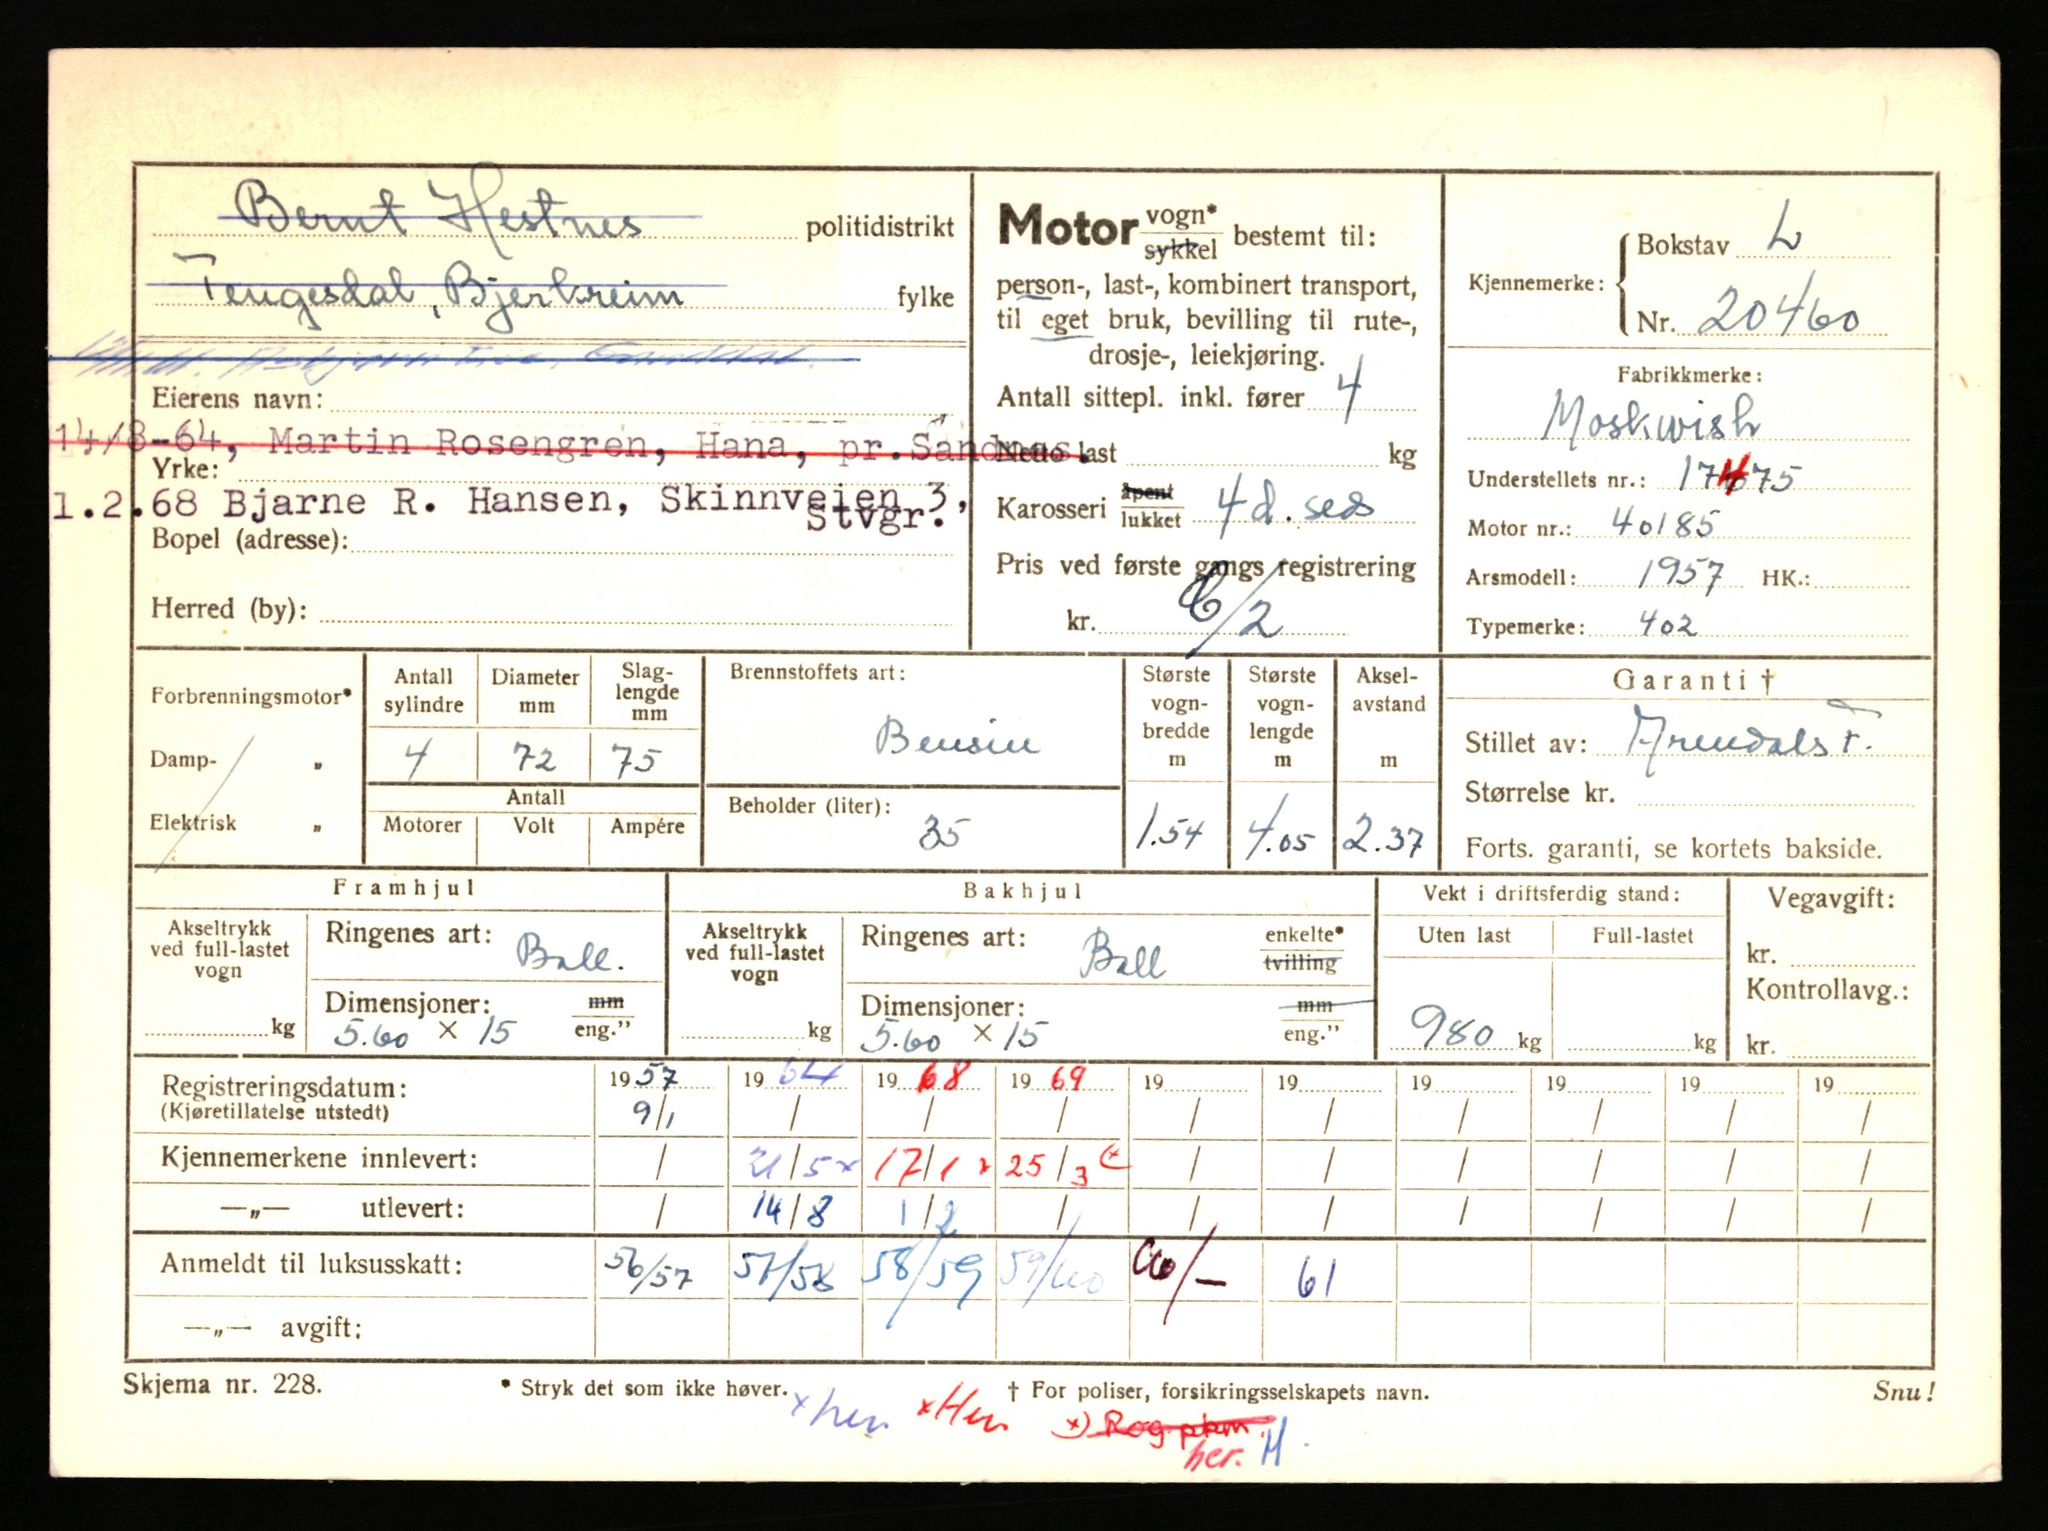 Bernt Hestnes politidistrikt
Tengesdal, Bjerkreim fylke
Eierens navn:
14/8-64, Martin Rosengren, Hana, pr. Sandnes.
Yrke:
1.2.68 Bjarne R. Hansen, Skinnveien 3,
Stvgr.
Bopel (adresse):
Herred (by):
Motor vogn* sykkel bestemt til:
person-, last-, kombinert transport,
til eget bruk, bevilling til rute-,
drosje-, leiekjøring.
Antall sittepl. inkl. fører 4
Netto last kg
Karosseri åpent lukket 4 d. sed
Pris ved første gangs registrering
kr.
Kjennemerke: Bokstav L
Nr. 20460
Fabrikkmerke:
Moskwish
Understellets nr.: 17475
Motor nr.: 40185
Arsmodell: 1957 HK.:
Typemerke: 402
Forbrenningsmotor*
Damp- „
Elektrisk „
Antall sylindre 4
Diameter mm 72
Slag-lengde mm 75
Antall
Motorer Volt Ampére
Brennstoffets art:
Bensin
Beholder (liter):
35
Største vogn-bredde m 1.54
Største vogn-lengde m 4.05
Aksel-avstand m 2.37
Garanti †
Stillet av: Arendals F.
Størrelse kr.
Forts. garanti, se kortets bakside.
Framhjul
Akseltrykk ved full-lastet vogn
kg
Ringenes art: Ball.
Dimensjoner: mm eng."
5.60 × 15
Bakhjul
Akseltrykk ved full-lastet vogn
kg
Ringenes art: Ball enkelte* tvilling
Dimensjoner: mm eng."
5.60 × 15
Vekt i driftsferdig stand:
Uten last Full-lastet
980 kg kg
Vegavgift:
kr.
Kontrollavg.:
kr.
Registreringsdatum: 1957 1964 1968 1969 19 19 19 19 19 19
(Kjøretillatelse utstedt) 9/1 / / / / / / / / /
Kjennemerkene innlevert: / 21/5 x 17/1 x 25/3 (x / / / / / /
—„— utlevert: / 14/8 1/2 / / / / / / /
Anmeldt til luksusskatt: 56/57 57/58 58/59 59/60 60/— 61
—„— avgift:
Skjema nr. 228.
* Stryk det som ikke høver.
† For poliser, forsikringsselskapets navn.
Snu!
x her x Her x) Rog.
her. H.